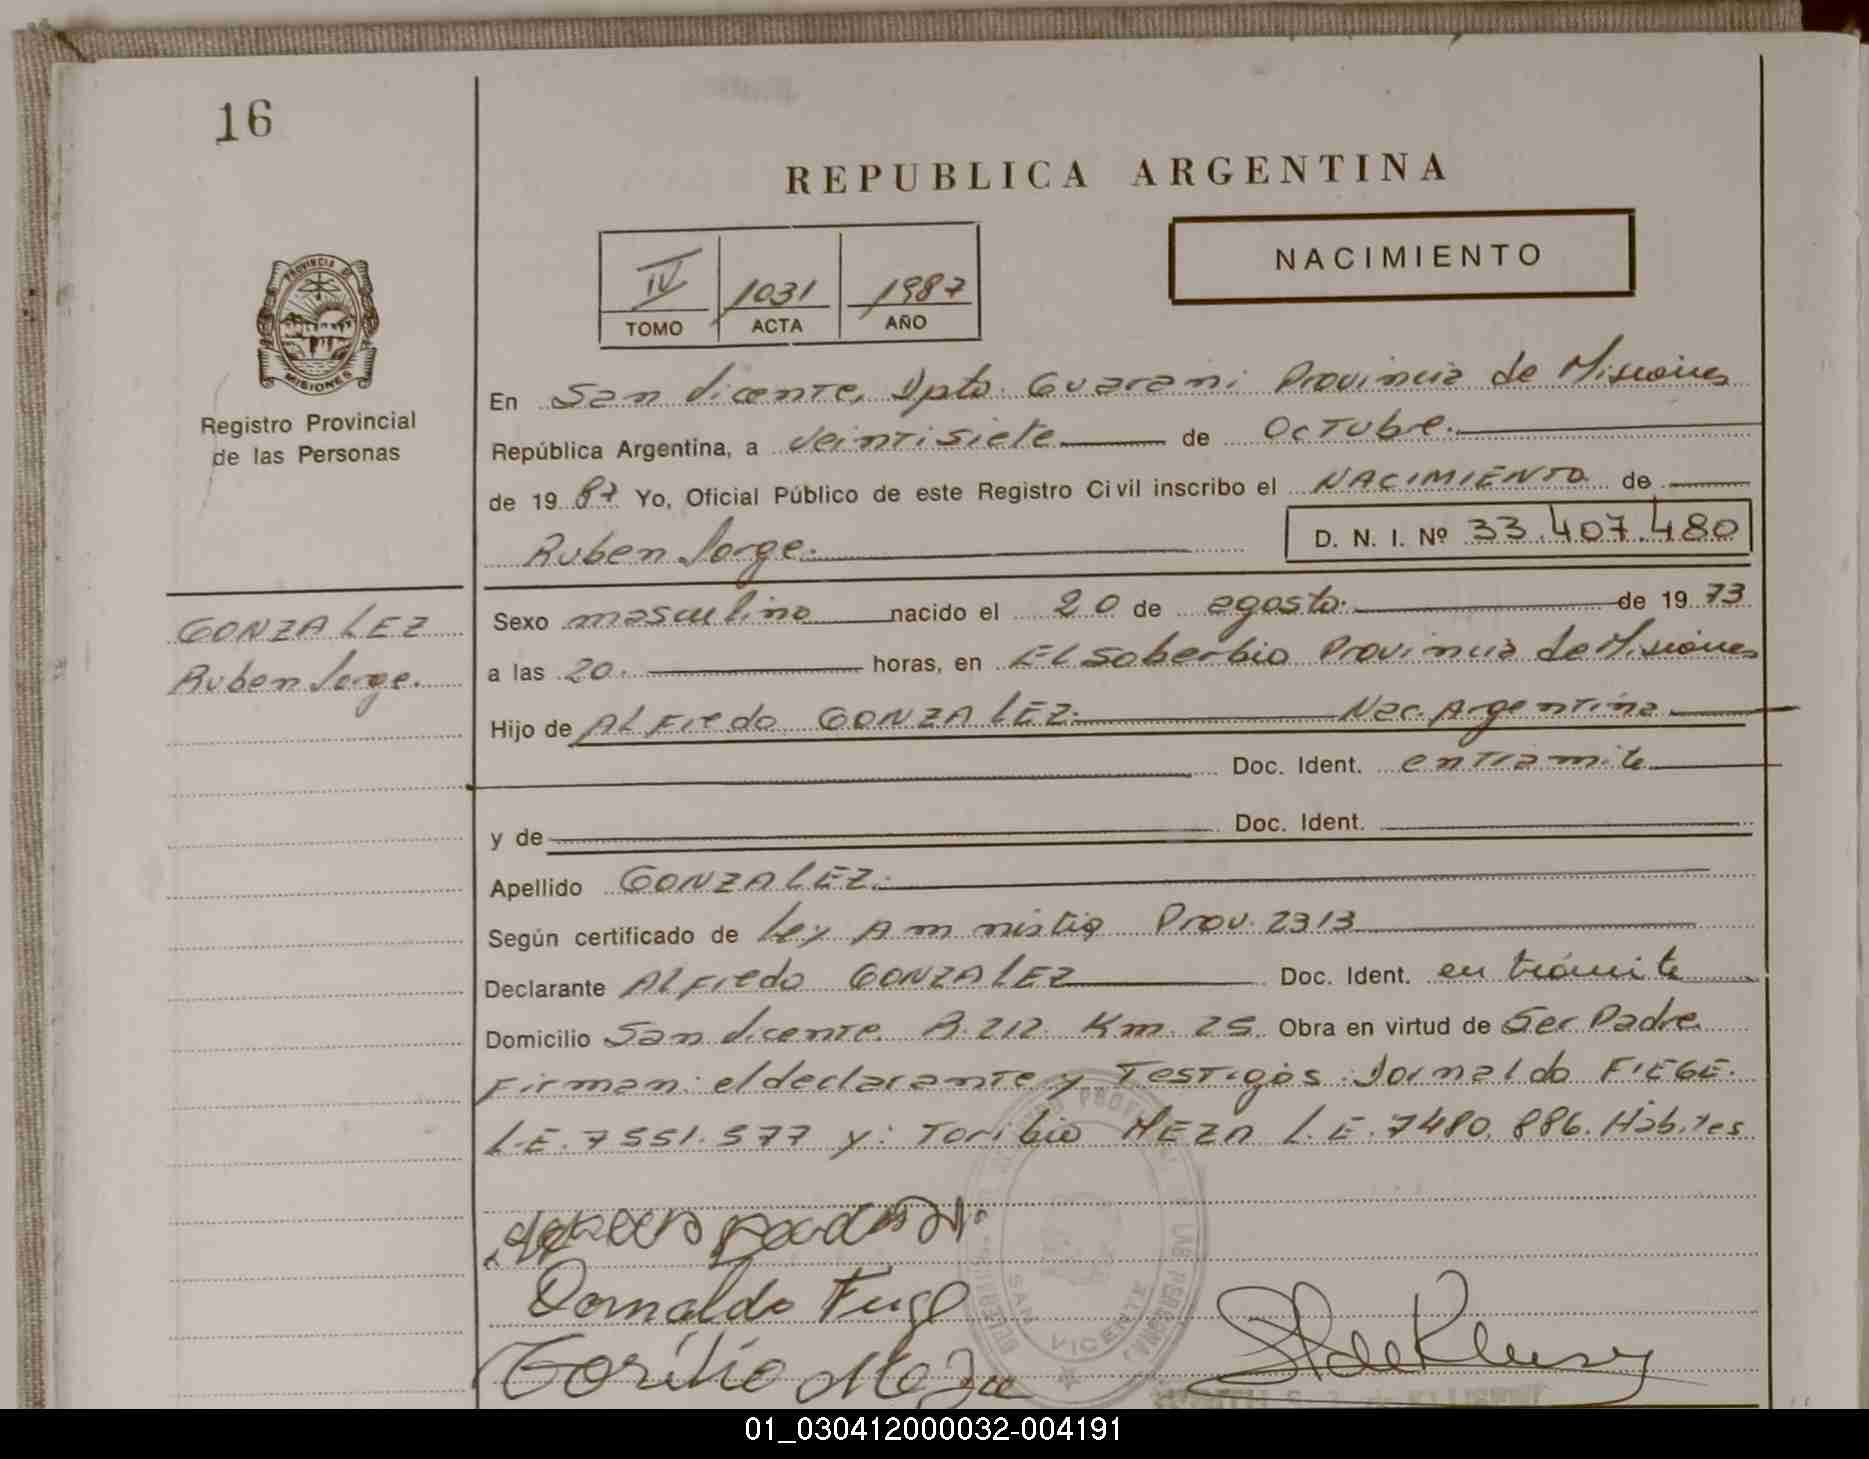 16
REPUBLICA ARGENTINA
NACIMIENTO
IV 1031 1987
TOMO ACTA AÑO
PROVINCIA DE
MISIONES
Registro Provincial
de las Personas
En San Vicente, Dpto. Guarani Provincia de Misiones
República Argentina, a veintisiete de Octubre.
de 19 87 Yo, Oficial Público de este Registro Civil inscribo el NACIMIENTO de
Ruben Jorge. D. N. I. Nº 33.407.480
GONZALEZ
Ruben Jorge.
Sexo masculino nacido el 20 de agosto. de 19 73
a las 20. horas, en El Soberbio Provincia de Misiones
Hijo de Alfredo GONZALEZ. Nac. Argentina
Doc. Ident. entramite
y de Doc. Ident.
Apellido GONZALEZ.
Según certificado de Ley Amnistia Prov. 2313
Declarante Alfredo GONZALEZ Doc. Ident. en trámite
Domicilio San Vicente. R. 212 Km. 25 Obra en virtud de Ser Padre
Firman: el declarante y Testigos: Dornaldo FIEGE.
L.E. 7551.577 y: Toribio MEZA L.E. 7480.886. Hábiles
Dornaldo
Toribio Meza
SAN VICENTE
01_030412000032-004191